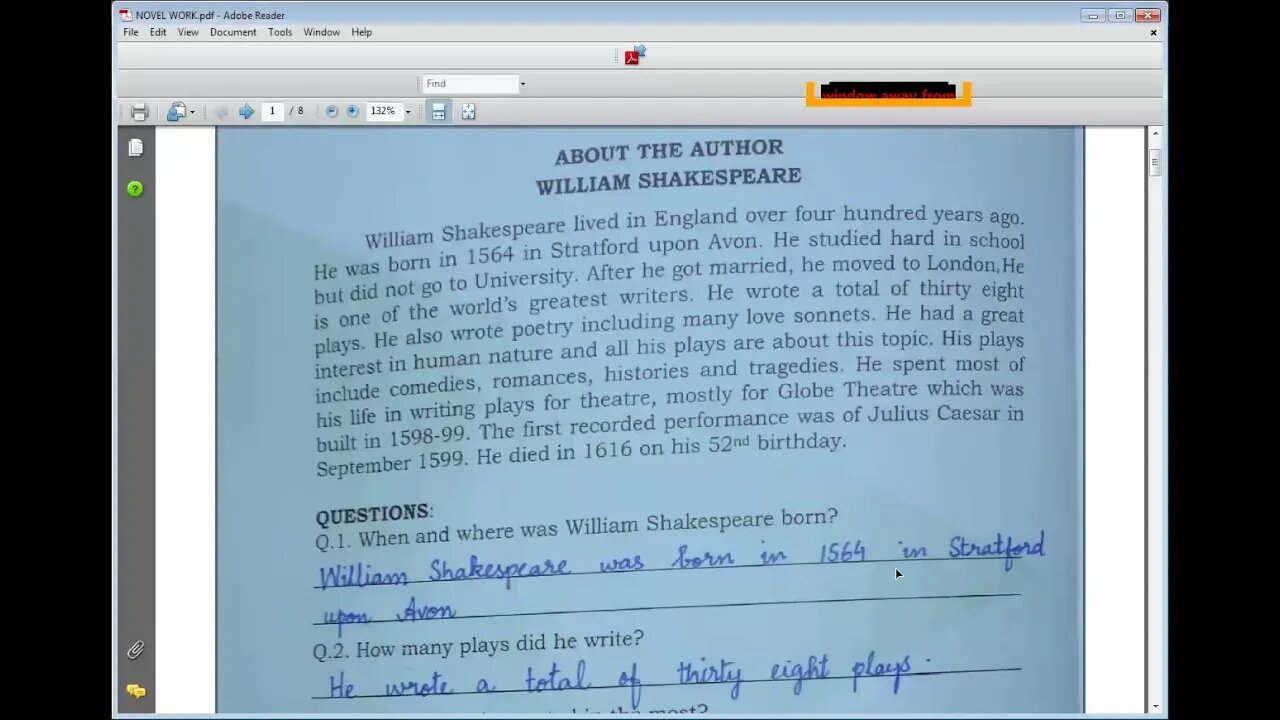 NOVEL WORK.pdf - Adobe Reader
File Edit View Document Tools Window Help
Find
window away from
1 / 8 132%
ABOUT THE AUTHOR
WILLIAM SHAKESPEARE
William Shakespeare lived in England over four hundred years ago.
He was born in 1564 in Stratford upon Avon. He studied hard in school
but did not go to University. After he got married, he moved to London. He
is one of the world's greatest writers. He wrote a total of thirty eight
plays. He also wrote poetry including many love sonnets. He had a great
interest in human nature and all his plays are about this topic. His plays
include comedies, romances, histories and tragedies. He spent most of
his life in writing plays for theatre, mostly for Globe Theatre which was
built in 1598-99. The first recorded performance was of Julius Caesar in
September 1599. He died in 1616 on his 52nd birthday.
QUESTIONS:
Q.1. When and where was William Shakespeare born?
William Shakespeare was born in 1564 in Stratford
upon Avon
Q.2. How many plays did he write?
He wrote a total of thirty eight plays.
in the most?